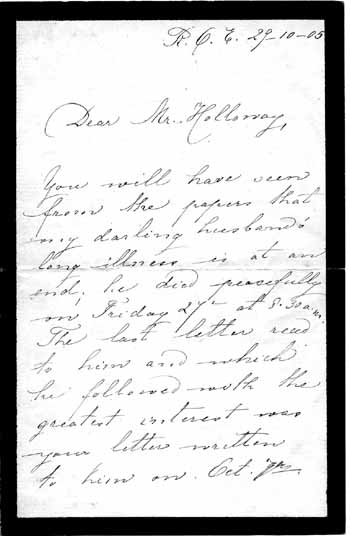 R. C. E. 29-10-05
Dear Mr. Holloway,
You will have seen
from the papers that
my darling husband's
long illness is at an
end, he died peacefully
on Friday 27th at 8.30 a.m.
The last letter read
to him and which
he followed with the
greatest interest was
your letter written
to him on Oct. 7th.